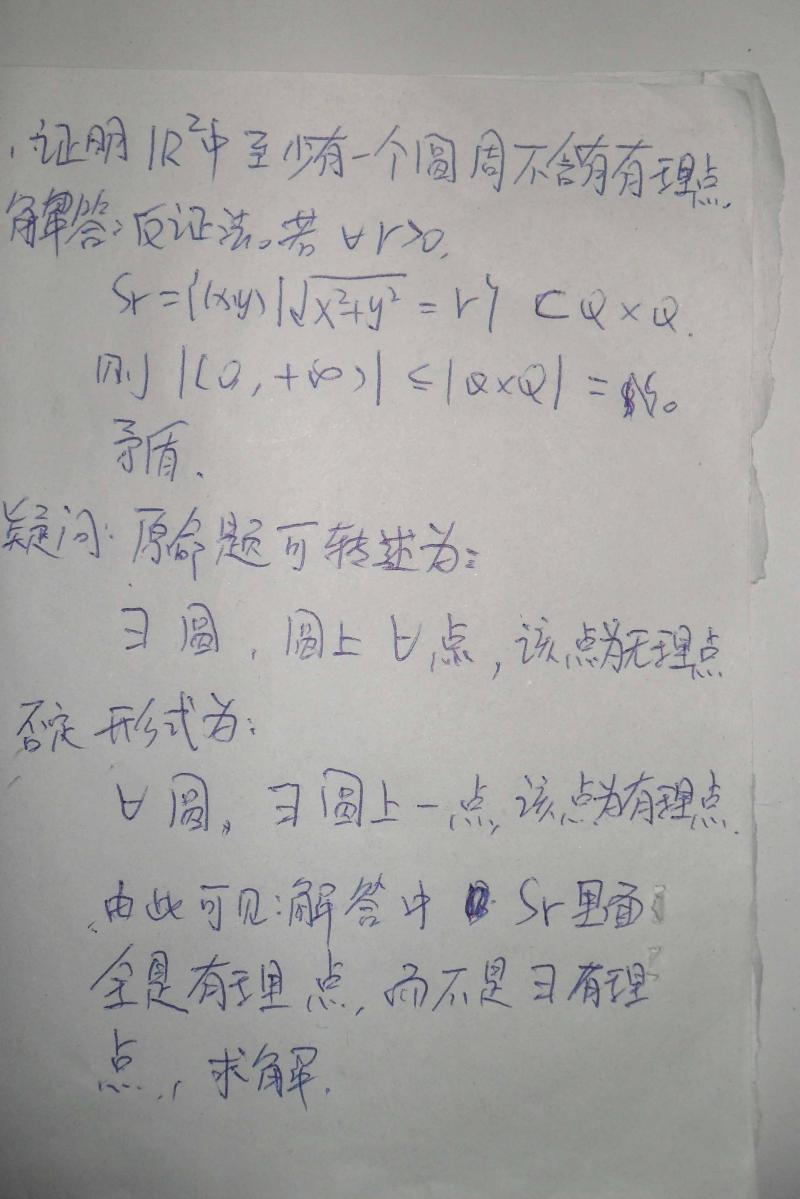 .证明 |R²中至少有一个圆周不含有有理点.
解答:反证法。若 ∀r>0,
Sr={(x,y)|√x²+y² = r} ⊂ Q×Q.
则 |(0,+∞)| ≤ |Q×Q| = ℵ₀
矛盾.
疑问: 原命题可转述为:
∃圆, 圆上∀点, 该点为无理点
否定形式为:
∀圆, ∃圆上一点, 该点为有理点.
由此可见:解答中 Sr里面
全是有理点, 而不是∃有理
点, 求解.